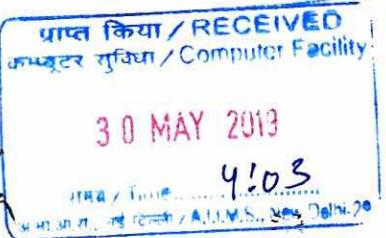 प्राप्त किया / RECEIVED
कम्प्यूटर सुविधा / Computer Facility
30 MAY 2019
समय / Time......4:03
अ.भा.आ.सं., नई दिल्ली / A.I.I.M.S., New Delhi-29